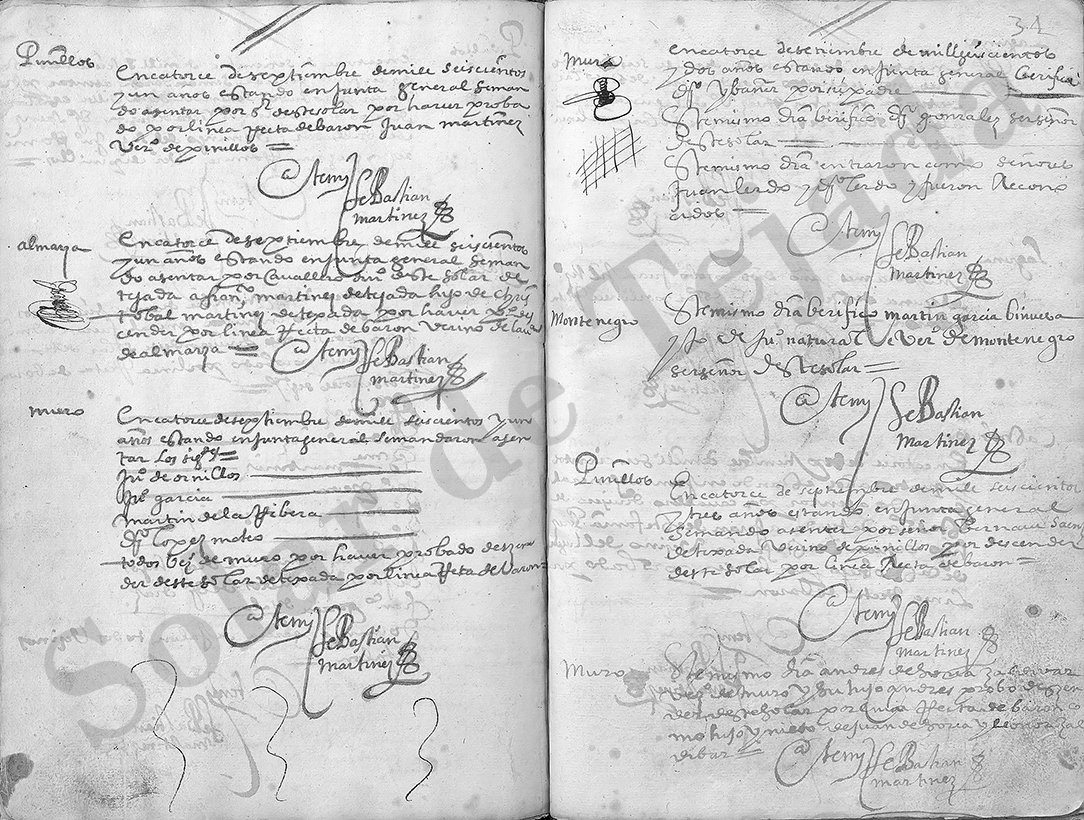 Pinillos
En catorce de septiembre de mill e seiscientos
y un años estando en junta general se man
do asentar por sr deste solar por haver proba
do por linea Recta de baron Juan martinez
Vezo de pinillos =
Ante mi
SeBastian
martinez
almarza
En catorce de septiembre de mill seiscientos
y un años estando en junta general se man
do asentar por cavallero deste solar de
tejada a fran martinez de texada hijo de Chris
tobal martinez de texada por haver
cender por linea Recta de baron Vecino de
de almarza =
Ante mi
SeBastian
martinez
muro
En catorce de septiembre de mill seiscientos y un
años estando en junta general se mandaron asen
tar los sigtes =
Juo de ornillos
garcia
martin de la Ribera
Do Lopez mateo
todos Vezos de muro por haver probado deszen
der deste solar de texada por linea Reta de Varon =
Ante mi
SeBastian
martinez
34
Muro
En catorce de setiembre de mill y seiscientos
y dos años estando en junta general berifico
Do ybañez por su padre
Ste mismo dia berifico Do gonzalez ser señor
deste solar
Ste mismo dia entraron como señores
Juan lerdo y Do lerdo y fueron Recono
cidos =
Ante mi
SeBastian
martinez
Montenegro
Ste mismo dia berifico martin garcia binuesa
yjo de Juo natural e Vezo de montenegro
ser señor deste solar =
Ante mi
SeBastian
Martinez
Pinillos
En catorce de septiembre de mill e seiscientos
y tres años estando en junta general
se mando asentar por señor Bernave Saenz
de texada Vezino de pinillos por descender
deste solar por linea Recta de baron =
Ante mi
SeBastian
martinez
Muro
Ste mismo dia andres de soria
Vezo de muro y su hijo andres probo deszen
der deste solar por linia Recta de baron co
mo hijo y nieto de juan de soria y
dibar =
Ante mi
SeBastian
martinez
Solar de Tejada